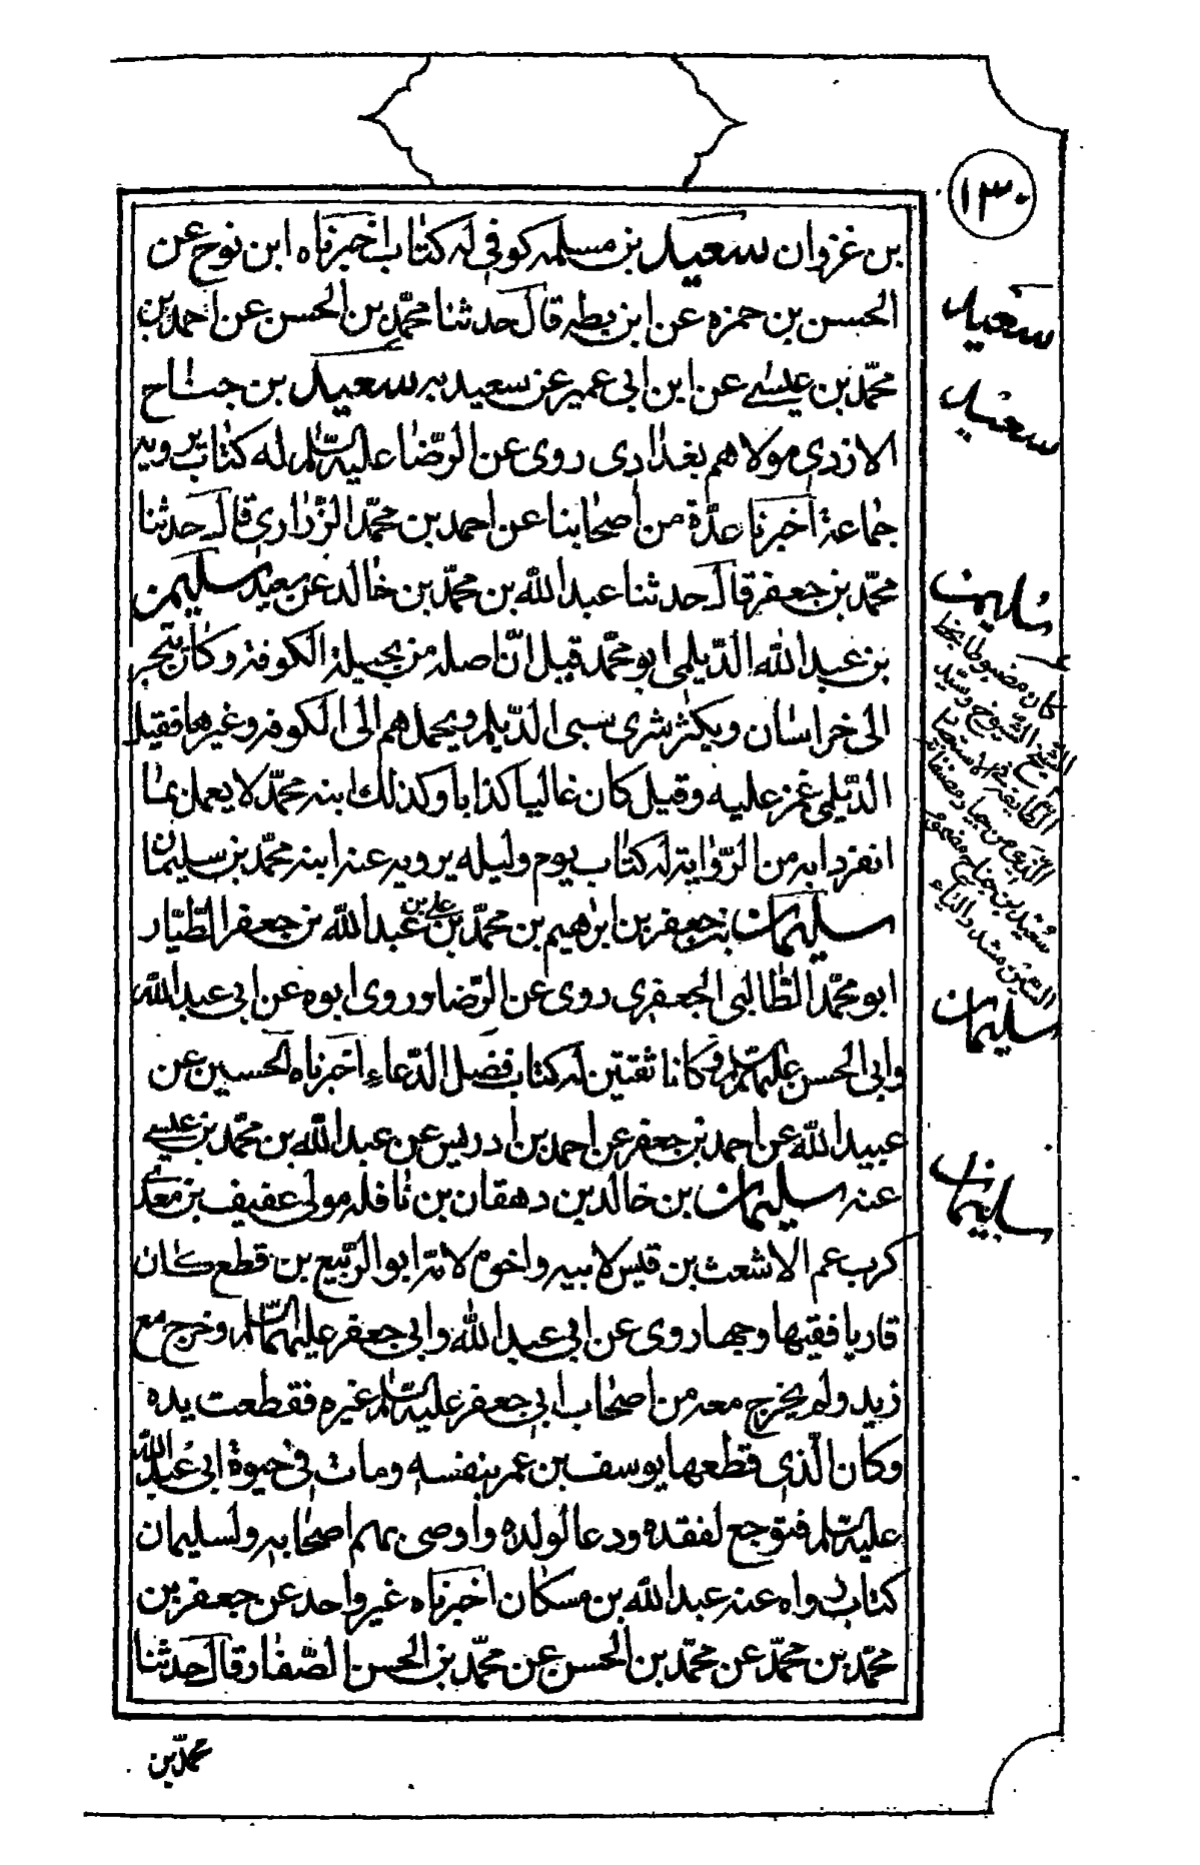 ١٣٠
بن غزوان سعيد بن مسلمه كوفي له كتاب اخبرناه ابن نوح عن
الحسن بن حمزه عن ابن بطه قال حدثنا محمّد بن الحسن عن احمد بن
محمّد بن عيسى عن ابن ابي عمير عن سعيد به سعيد بن جناح
الازدي مولاهم بغدادي روى عن الرّضا عليه السّلم له كتاب يرويه
جماعة اخبرنا عدّة من اصحابنا عن احمد بن محمّد الزّراري قال حدثنا
محمّد بن جعفر قال حدثنا عبد الله بن محمّد بن خالد عن سعيد سليمن
بن عبد الله الدّيلمي ابو محمّد قيل انّ اصله من بجيلة الكوفة وكان يتّجر
الى خراسان ويكثر شرى سبي الدّيلم ويحملهم الى الكوفة وغيرها فقيل
الدّيلمي غمز عليه وقيل كان غاليا كذابا وكذلك ابنه محمّد لا يعمل بما
انفردا به من الرّواية له كتاب يوم وليله يرويه عنه ابنه محمّد بن سليمان
سليمان بن جعفر بن ابرهيم بن محمّد بن علي بن عبد الله بن جعفر الطّيّار
ابو محمّد الطّالبي الجعفري روى عن الرّضا وروى ابوه عن ابي عبد الله
وابي الحسن عليهما السّلم وكانا ثقتين له كتاب فضل الدّعاء اخبرناه الحسين عن
عبيد الله عن احمد بن جعفر عن احمد بن ادريس عن عبد الله بن محمّد بن عيسى
عنه سليمان بن خالد بن دهقان بن نافله مولى عفيف بن معدي
كرب عم الاشعث بن قيس لابيه واخوه لامّه ابو الرّبيع بن قطع كان
قاريا فقيها وجها روى عن ابي عبد الله وابي جعفر عليهما السّلم وخرج مع
زيد ولم يخرج معه من اصحاب ابي جعفر عليه السّلم غيره فقطعت يده
وكان الّذي قطعها يوسف بن عمر بنفسه ومات في حيوة ابي عبد الله
عليه السّلم فتوجع لفقده ودعا لولده واوصى بهم اصحابه ولسليمان
كتاب رواه عنه عبد الله بن مسكان اخبرناه غير واحد عن جعفر بن
محمّد بن محمّد عن محمّد بن الحسن عن محمّد بن الحسن الصّفار قال حدثنا
محمّد بن
سعيد
سعيد
سليمن
كان مضبوطا بخط
الشيخ
سعيد بن جناح
سليمان
سليمان